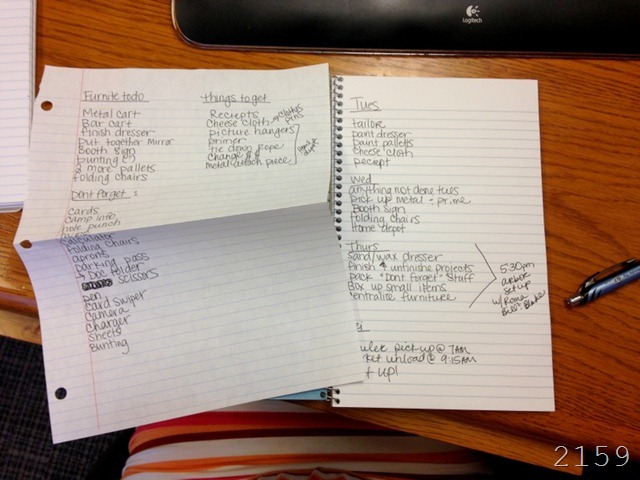 Logitech
Furnite to do
Metal cart
Bar cart
finish dresser
put together mirror
Booth sign
bunting
2 more pallets
folding chairs
Dont forget:
Cards
Camp info
hole punch
calculator
folding chairs
aprons
parking pass
Doc folder
scissors
pen
card swiper
camera
charger
sheets
Bunting
things to get
Reciepts
Cheese cloth → clothes pins
picture hangers
primer
tie down rope
change $$
metal attach piece
home depot
Tues
tailore
paint dresser
paint pallets
cheese cloth
reciept
Wed
anything not done tues
pick up metal + prime
Booth sign
folding chairs
Home depot
Thurs
sand/wax dresser
finish 4 unfinishe projects
pack "Dont Forget" stuff
Box up small items
centralize furniture
5:30pm
arbor
set up
w/ Roma
Blake
pick up @ 7AM
unload @ 9:15AM
up!
2159